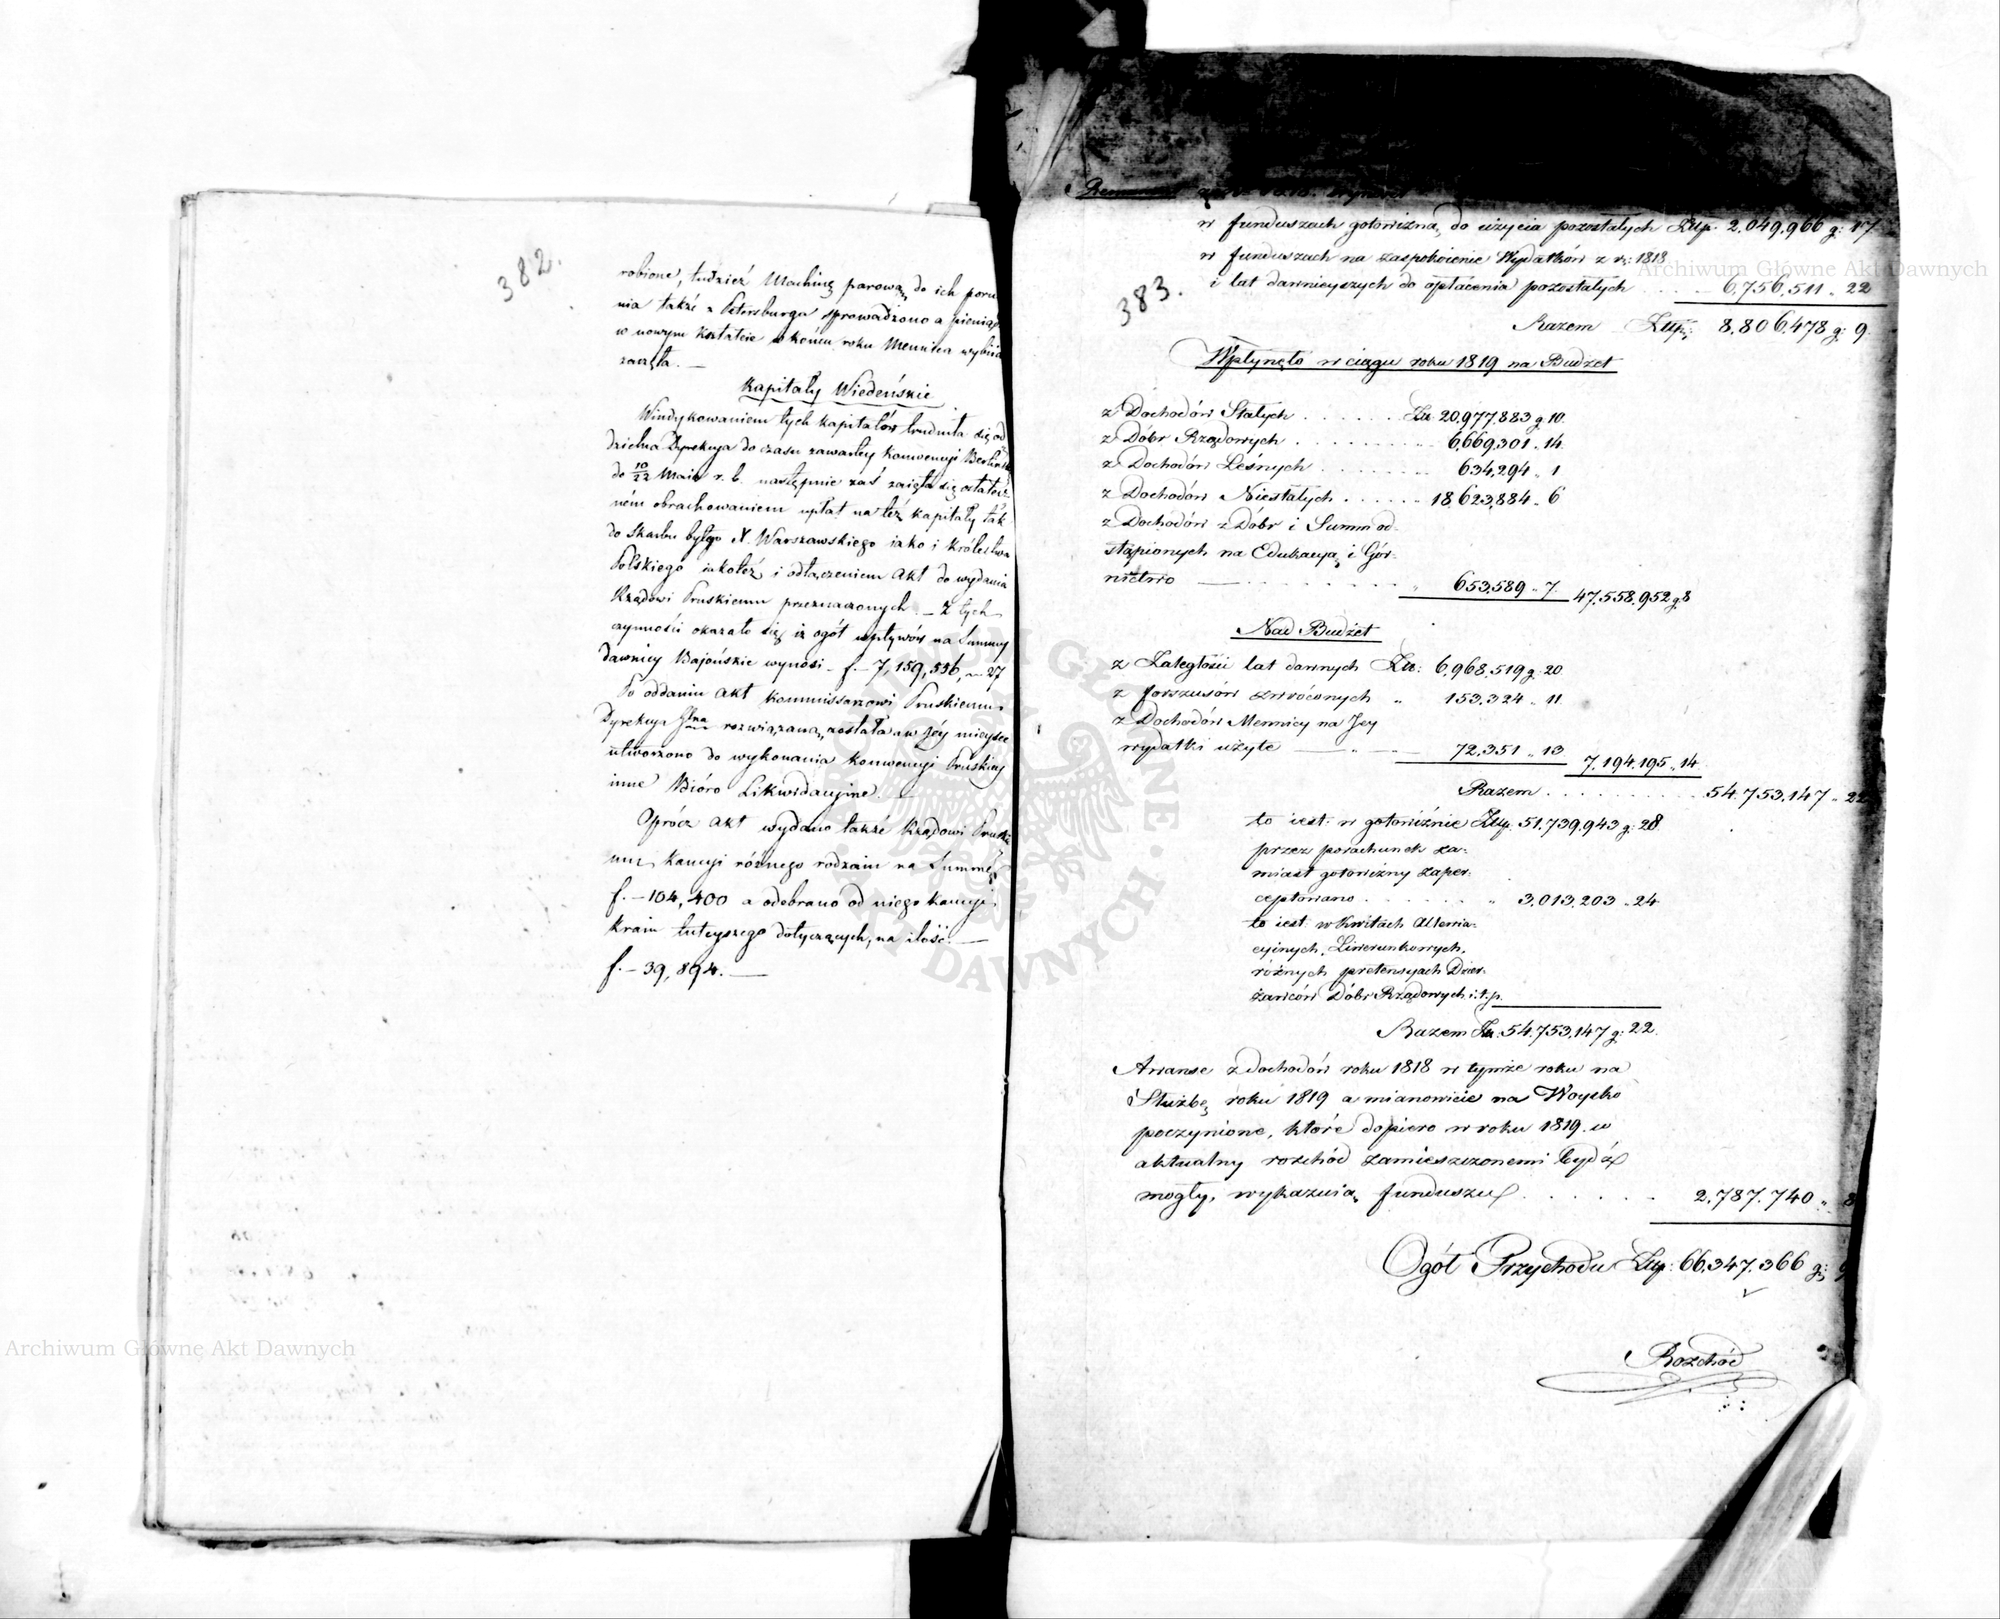 382.
robione, tudzież Machinę parową do ich
nia także z Petersburga sprowadzono a
w nowym kształcie w końcu roku Mennica
zaczęła. —
Kapitały Wiedeńskie
Windykowaniem tych kapitałów trudniła się
dzielna Dyrekcya do czasu zawartey Konwencyi
do 10/22 Maia r. b. następnie zaś zaięła się
ném obrachowaniem wpłat na też kapitały tak
do Skarbu byłgo X. Warszawskiego iako i Królestwa
Polskiego iakoteż i odłączeniem Akt do wydania
Rządowi Pruskiemu przeznaczonych — Z tych
czynności okazało się iż ogół wpływów na Summy
dawniey Bajońskie wynosi — f. — 7,159,556, — 27
Po oddaniu Akt Kommissarzowi Pruskiemu
Dyrekcya rozwiązaną została a w Jéy mieysce
utworzono do wykonania Konwencyi Pruskiey
inne Bióro Likwidacyine. —
Oprócz Akt wydano także Rządowi
mu Kaucyi różnego rodzaiu na Summę
f. — 104,400 a odebrano od niego Kaucyi
Kraiu tuteyszego dotyczących, na ilość —
f. — 39,894. —
383.
w funduszach gotowizną do użycia pozostałych Złp. 2,049,966 g: 17
w funduszach na zaspokoienie Wydatków z r: 1818
i lat dawnieyszych do opłacenia pozostałych . . . . 6,756,511 „ 22
Razem Złp: 8,806,478 g: 9.
Wpłynęło w ciągu roku 1819 na Budżet
z Dochodów Stałych . . . . . . Zł: 20,977,883 g: 10.
z Dóbr Rządowych . . . . . . . . 6,669,301 „ 14.
z Dochodów Leśnych . . . . . . . 634,294 „ 1
z Dochodów Niestałych . . . . . . 18,623,884 „ 6
z Dochodów z Dóbr i Summ od-
stąpionych na Edukacyą i Gór-
nictwo — . . . . . . . „ 653,589 „ 7. 47,558,952 g: 8
Nad Budżet
z Zaległości lat dawnych Zł: 6,968,519 g: 20.
z forszusów zwróconych „ 153,324 „ 11.
z Dochodów Mennicy na Jey
wydatki użyte — „ — 72,351 „ 13 7,194,195 „ 14
Razem . . . . . . . . . 54,753,147 „ 22
to iest: w gotowiźnie Złp. 51,739,943 g: 28.
przez porachunek za-
miast gotowizny zaper-
ceptowano . . . . . . . „ 3,013,203 „ 24
to iest: w Kwitach Allewia-
cyinych, Liwerunkowych,
różnych pretensyach Dzier-
żawców Dóbr Rządowych i. t. p.
Razem Zł: 54,753,147 g: 22.
Awanse z dochodów roku 1818 w tymże roku na
Służbę roku 1819 a mianowicie na Woysko
poczynione, które dopiero w roku 1819. w
aktualny rozchód zamieszczonemi bydź
mogły, wykazuią funduszu . . . . . . 2,787,740 „ 8
Ogół Przychodu Złp: 66,347,366 g: 9
Rozchód
Archiwum Główne Akt Dawnych
Archiwum Główne Akt Dawnych